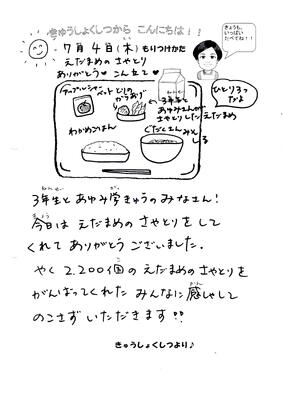 きゅうしょくしつから こんにちは!!
きょうも、
いっぱい
たべてね!!
7月4日(木)もりつけかた
えだまめの さやとり
ありがとう♡ こん立て♡
ひとり3つ
だよ
アップルシャーベット
とり
からあげ
3年生と
あゆみさんが
さやとりした えだまめ
わかめごはん
ぐだくさんみそしる
3年生と あゆみ学きゅうの みなさん!
今日は えだまめの さやとりを して
くれて ありがとう ございました。
やく 2,200個の えだまめの さやとりを
がんばってくれた みんなに 感しゃして
のこさず いただきます!!
きゅうしょくしつより♪